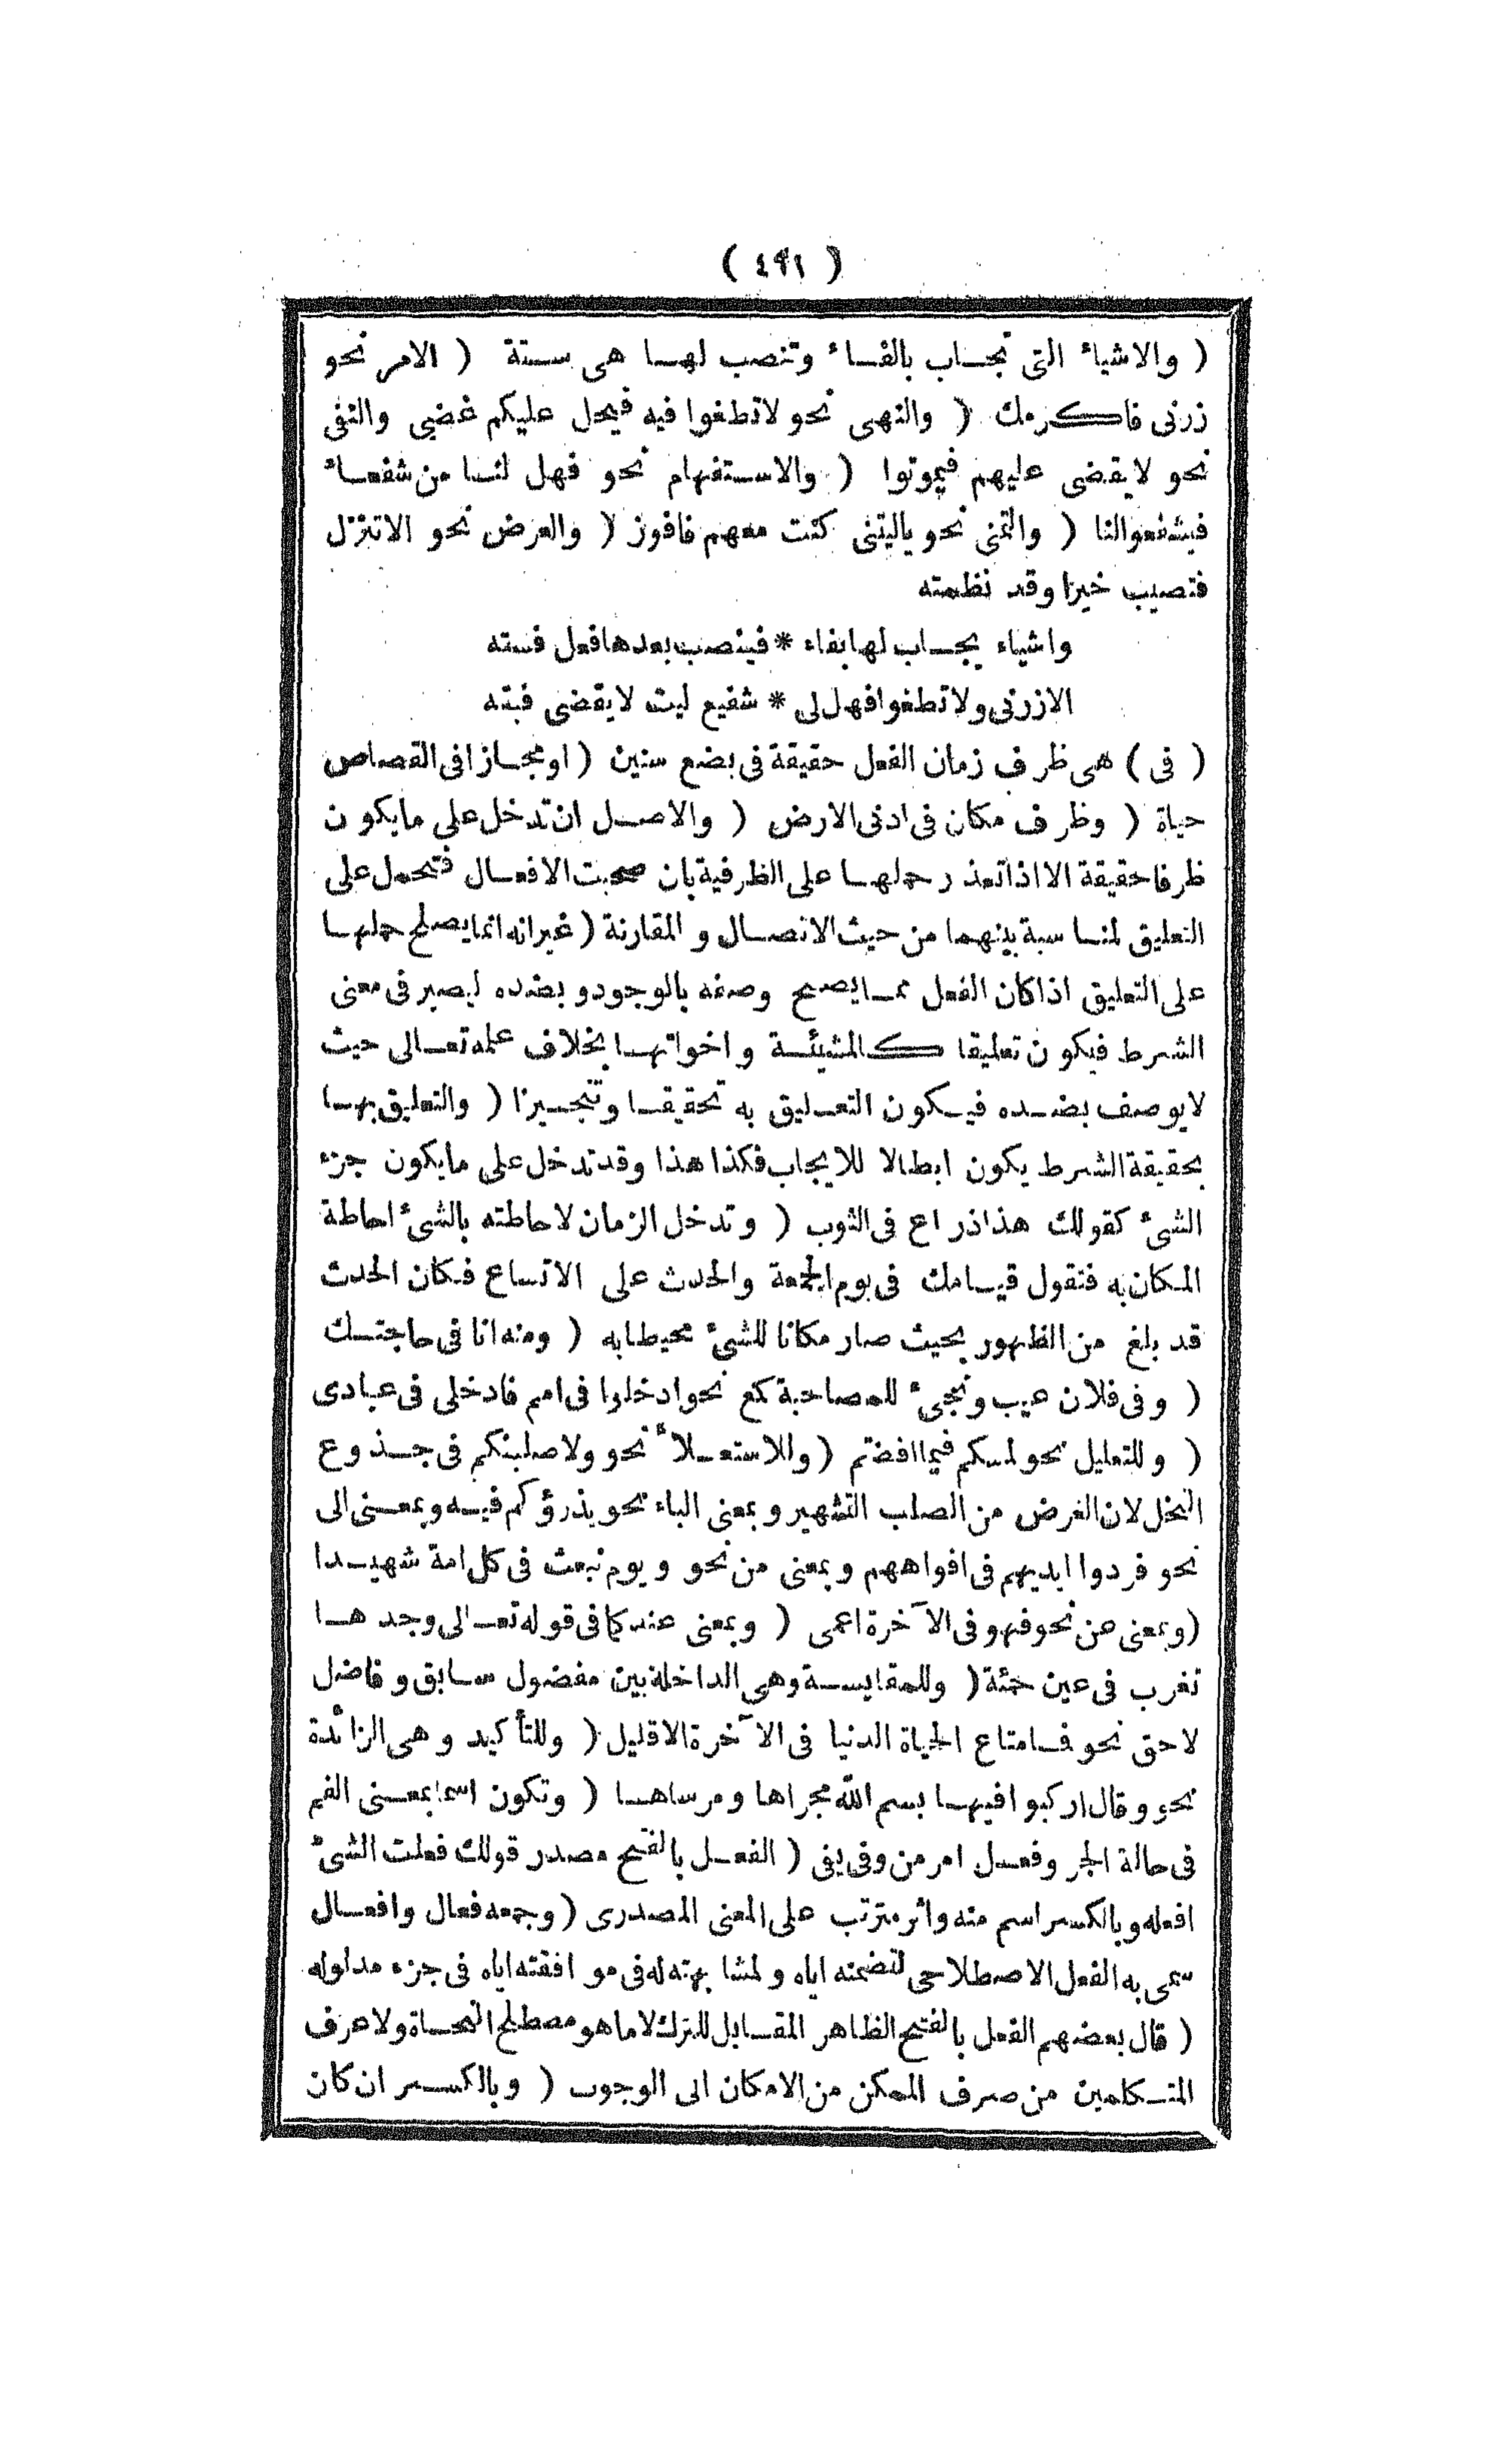 ( ٤٩١ )
( والاشياء التى تجاب بالفاء وتنصب لها هى ستة ( الامر نحو
زرنى فاكرمك ( والنهى نحو لاتطغوا فيه فيحل عليكم غضبى والنفى
نحو لايقضى عليهم فيموتوا ( والاستفهام نحو فهل لنا من شفعاء
فيشفعوالنا ( والتمنى نحو ياليتنى كنت معهم فافوز ( والعرض نحو الاتنزل
فتصيب خيرا وقد نظمته
واشياء يجاب لها بفاء * فينصب بعدها فعل فسته
الازرنى ولا تطغوا فهل لى * شفيع ليت لايقضى فبته
( فى ) هى ظرف زمان الفعل حقيقة فى بضع سنين ( او مجازا فى القصاص
حياة ( وظرف مكان فى ادنى الارض ( والاصل ان تدخل على مايكون
ظرفا حقيقة الا اذا تعذر حملها على الظرفية بان صحبت الافعال فتحمل على
التعليق لمناسبة بينهما من حيث الاتصال والمقارنة ( غير انه انما يصلح حملها
على التعليق اذا كان الفعل مما يصح وصفه بالوجود و بضده ليصير فى معنى
الشرط فيكون تعليقا كالمشيئة واخواتها بخلاف علمه تعالى حيث
لايوصف بضده فيكون التعليق به تحقيقا وتنجيزا ( والتعليق بها
بحقيقة الشرط يكون ابطالا للايجاب فكذا هذا وقد تدخل على مايكون جزء
الشىء كقولك هذا ذراع فى الثوب ( وتدخل الزمان لاحاطته بالشىء احاطة
المكان به فتقول قيامك فى يوم الجمعة والحدث على الاتساع فكان الحدث
قد بلغ من الظهور بحيث صار مكانا للشىء محيطا به ( ومنه انا فى حاجتك
( وفى فلان عيب ونجىء للمصاحبة كمع نحو ادخلوا فى امم فادخلى فى عبادى
( وللتعليل نحو لمسكم فيما افضتم ( وللاستعلاء نحو ولاصلبنكم فى جذوع
النخل لان الغرض من الصلب التشهير وبمعنى الباء نحو يذرؤكم فيه وبمعنى الى
نحو فردوا ايديهم فى افواههم وبمعنى من نحو ويوم نبعث فى كل امة شهيدا
( وبمعنى عن نحو فهو فى الآخرة اعمى ( وبمعنى عند كما فى قوله تعالى وجدها
تغرب فى عين حمئة ( وللمقايسة وهى الداخلة بين مفضول سابق وفاضل
لاحق نحو فما متاع الحياة الدنيا فى الآخرة الا قليل ( وللتأكيد وهى الزائدة
نحو وقال اركبوا فيها بسم الله مجراها ومرساها ( وتكون اسما بمعنى الفم
فى حالة الجر وفعل امر من وفى يفى ( الفعل بالفتح مصدر قولك فعلت الشىء
افعله وبالكسر اسم منه واثر مترتب على المعنى المصدرى ( وجمعه فعال وافعال
سمى به الفعل الاصطلاحى لتضمنه اياه ولمشابهته له فى موافقته اياه فى جزء مدلوله
( قال بعضهم الفعل بالفتح الظاهر المقابل للترك لا ما هو مصطلح النحاة ولا عرف
المتكلمين من صرف الممكن من الامكان الى الوجوب ( وبالكسر ان كان